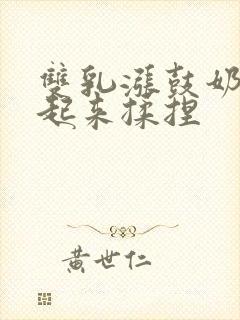 雙乳漲鼓奶
起来揉捏
黄世仁